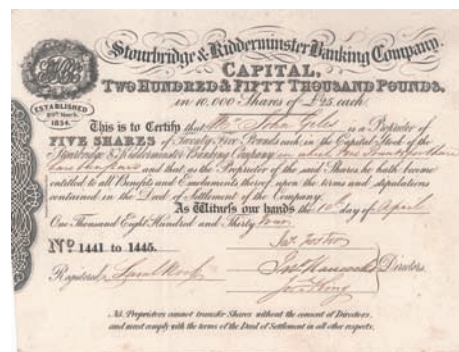 Stourbridge & Kidderminster Banking Company.
CAPITAL,
TWO HUNDRED & FIFTY THOUSAND POUNDS,
in 10,000 Shares of £25 each.
ESTABLISHED
1834.
This is to Certify that Mr. John Giles is a Proprietor of
FIVE SHARES of Twenty Five Pounds each, in the Capital Stock of the
Stourbridge & Kidderminster Banking Company on which
have been paid and that as the Proprietor of the said Shares he hath become
entitled to all Benefits and Emoluments thereof, upon the terms and stipulations
contained in the Deed of Settlement of the Company.
As Witness our hands the 10th day of April
One Thousand Eight Hundred and Thirty four
No 1441 to 1445.
Jas. Foster
Registered
Directors.
N.B. Proprietors cannot transfer Shares without the consent of Directors,
and must comply with the terms of the Deed of Settlement in all other respects.